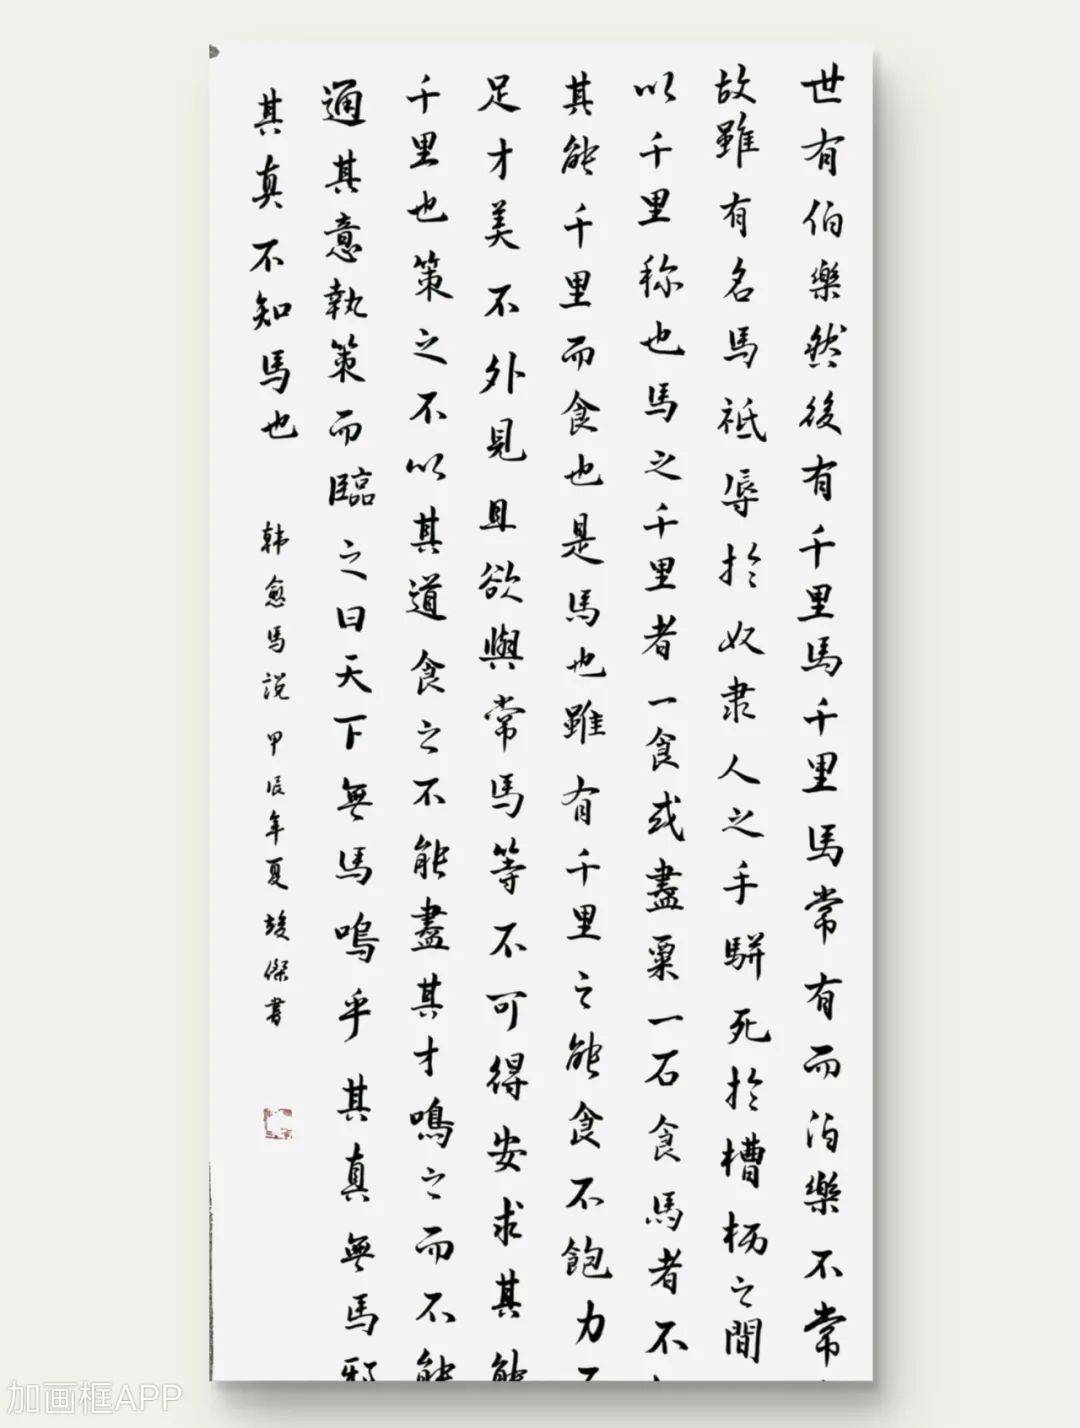 世有伯樂然後有千里馬千里馬常有而伯樂不常
故雖有名馬祗辱於奴隶人之手駢死於槽枥之間
以千里称也馬之千里者一食或盡粟一石食馬者不
其能千里而食也是馬也雖有千里之能食不飽力不
足才美不外見且欲與常馬等不可得安求其能
千里也策之不以其道食之不能盡其才鳴之而不能
通其意執策而臨之曰天下無馬嗚乎其真無馬邪
其真不知馬也 韩愈馬說 甲辰年夏 竣傑書
加画框APP